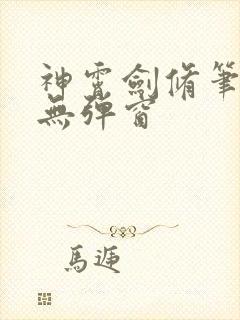 神霄劍脩筆
無彈窗
馬遞